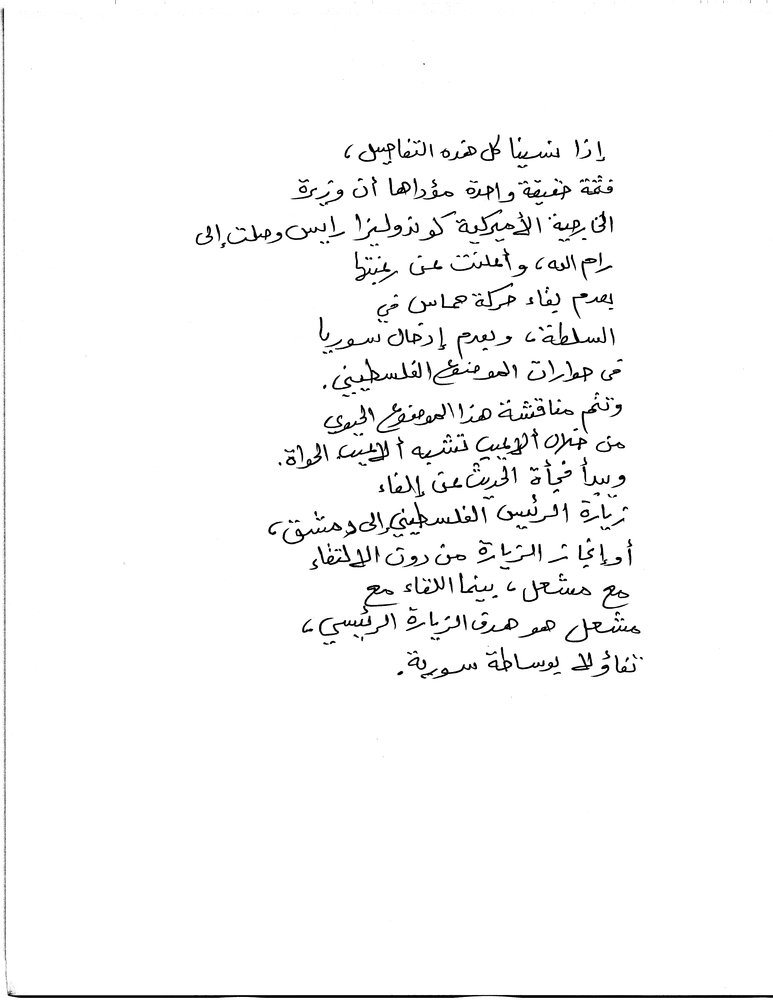 إذا نسينا كل هذه التفاصيل،
فثمة حقيقة واحدة مؤداها أن وزيرة
الخارجية الأميركية كوندوليزا رايس وصلت إلى
رام الله، وأعلنت عن رغبتها
بعدم بقاء حركة حماس في
السلطة، وبعدم إدخال سوريا
في حوارات الموضوع الفلسطيني.
وتتم مناقشة هذا الموضوع الحيوي
من خلال ألاعيب تشبه ألاعيب الحواة.
ويبدأ فجأة الحديث عن إلغاء
زيارة الرئيس الفلسطيني إلى دمشق،
أو إنجاز الزيارة من دون الالتقاء
مع مشعل، بينما اللقاء مع
مشعل هو هدف الزيارة الرئيسي،
تفاؤلا بوساطة سورية.